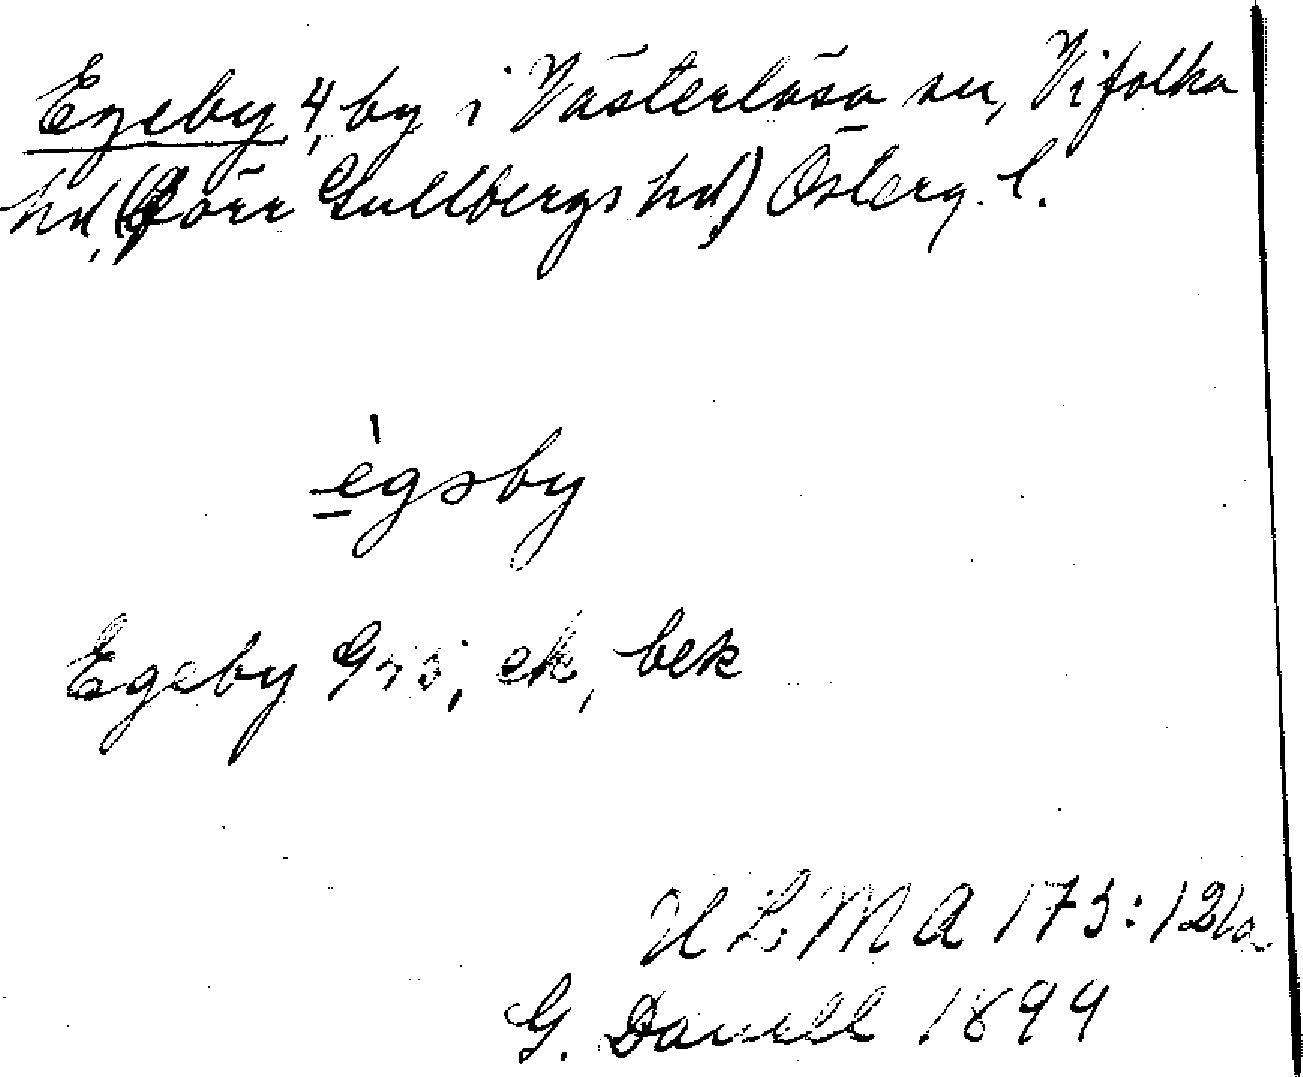 Egeby 4, by i Västerlösa sn, Vifolka
hd, (förr Gullbergs hd) Österg. l.
ègsby
Egeby Grs, ek, bek
ULMA 173:121a
G. Danell 1899